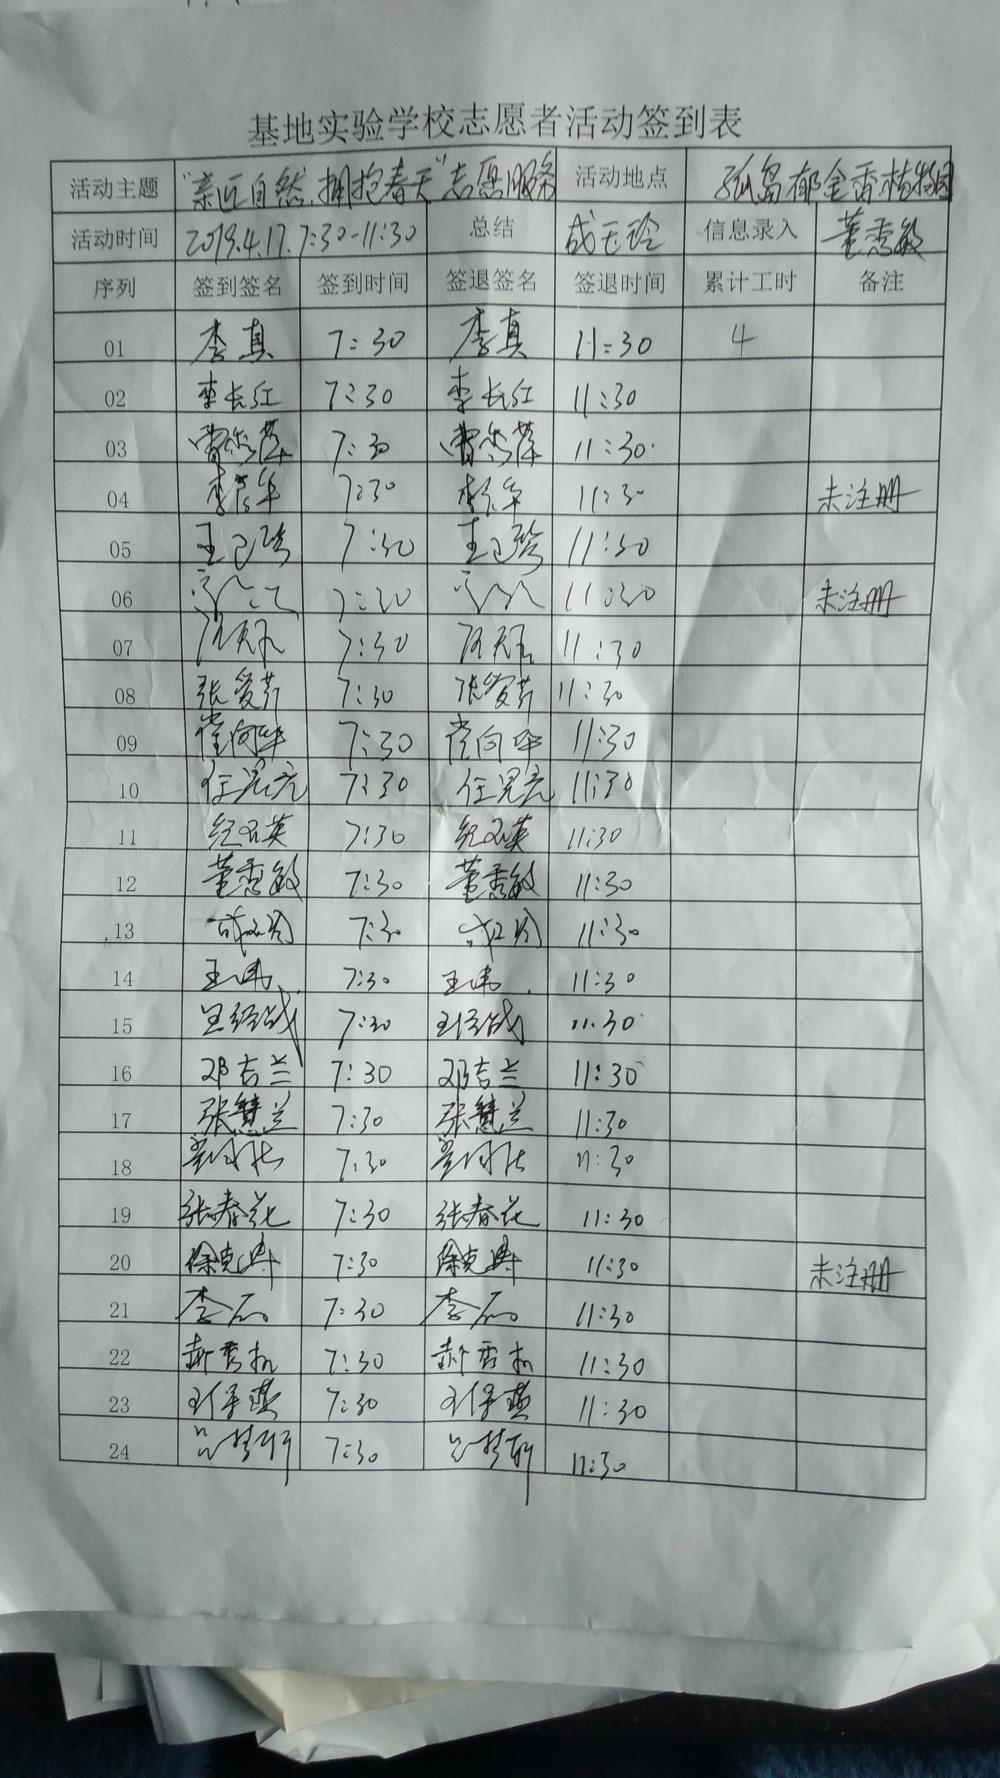 基地实验学校志愿者活动签到表
活动主题 "亲近自然,拥抱春天"志愿服务 活动地点 孤岛郁金香植物园
活动时间 2019.4.17.7:30-11:30 总结 成玉玲 信息录入 董秀敏
序列 签到签名 签到时间 签退签名 签退时间 累计工时 备注
01 李真 7:30 李真 11:30 4
02 李长红 7:30 李长红 11:30
03 7:30 11:30
04 7:30 11:30 未注册
05 7:30 11:30
06 7:30 11:30 未注册
07 7:30 11:30
08 张爱芹 7:30 张爱芹 11:30
09 7:30 11:30
10 7:30 11:30
11 7:30 11:30
12 董秀敏 7:30 董秀敏 11:30
13 7:30 11:30
14 王伟 7:30 王伟 11:30
15 7:30 11:30
16 邓吉兰 7:30 邓吉兰 11:30
17 张慧兰 7:30 张慧兰 11:30
18 7:30 11:30
19 张春花 7:30 张春花 11:30
20 7:30 11:30 未注册
21 7:30 11:30
22 7:30 11:30
23 7:30 11:30
24 7:30 11:30